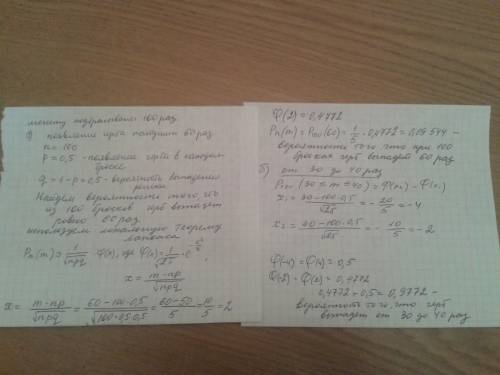 монету подбрасывали 100 раз
а) появление герба наступит 60 раз
n = 100
p = 0,5 - появление герба в каждом
броске
q = 1 - p = 0,5 - вероятность выпадения
решки
Найдем вероятность того, что
из 100 бросков герб выпадет
ровно 60 раз
используем локальную теорему
Лапласа
Pn(m) = 1/√npq · φ(x), где φ(x) = 1/√2π · e^(-x²/2)
x = (m - np)/√npq
x = (m - np)/√npq = (60 - 100 · 0,5)/√(100 · 0,5 · 0,5) = (60 - 50)/5 = 10/5 = 2
Ф(2) = 0,4772
Pn(m) = P100(60) = 1/5 · 0,4772 = 0,09544 -
вероятность того, что при 100
бросках герб выпадет 60 раз
б) от 30 до 40 раз
P100(30 ≤ m ≤ 40) = Ф(x2) - Ф(x1)
x1 = (30 - 100 · 0,5)/√25 = - 20/5 = -4
x2 = (40 - 100 · 0,5)/√25 = - 10/5 = -2
Ф(-4) = Ф(4) = 0,5
Ф(-2) = Ф(2) = 0,4772
0,4772 + 0,5 = 0,9772 -
вероятность того, что герб
выпадет от 30 до 40 раз